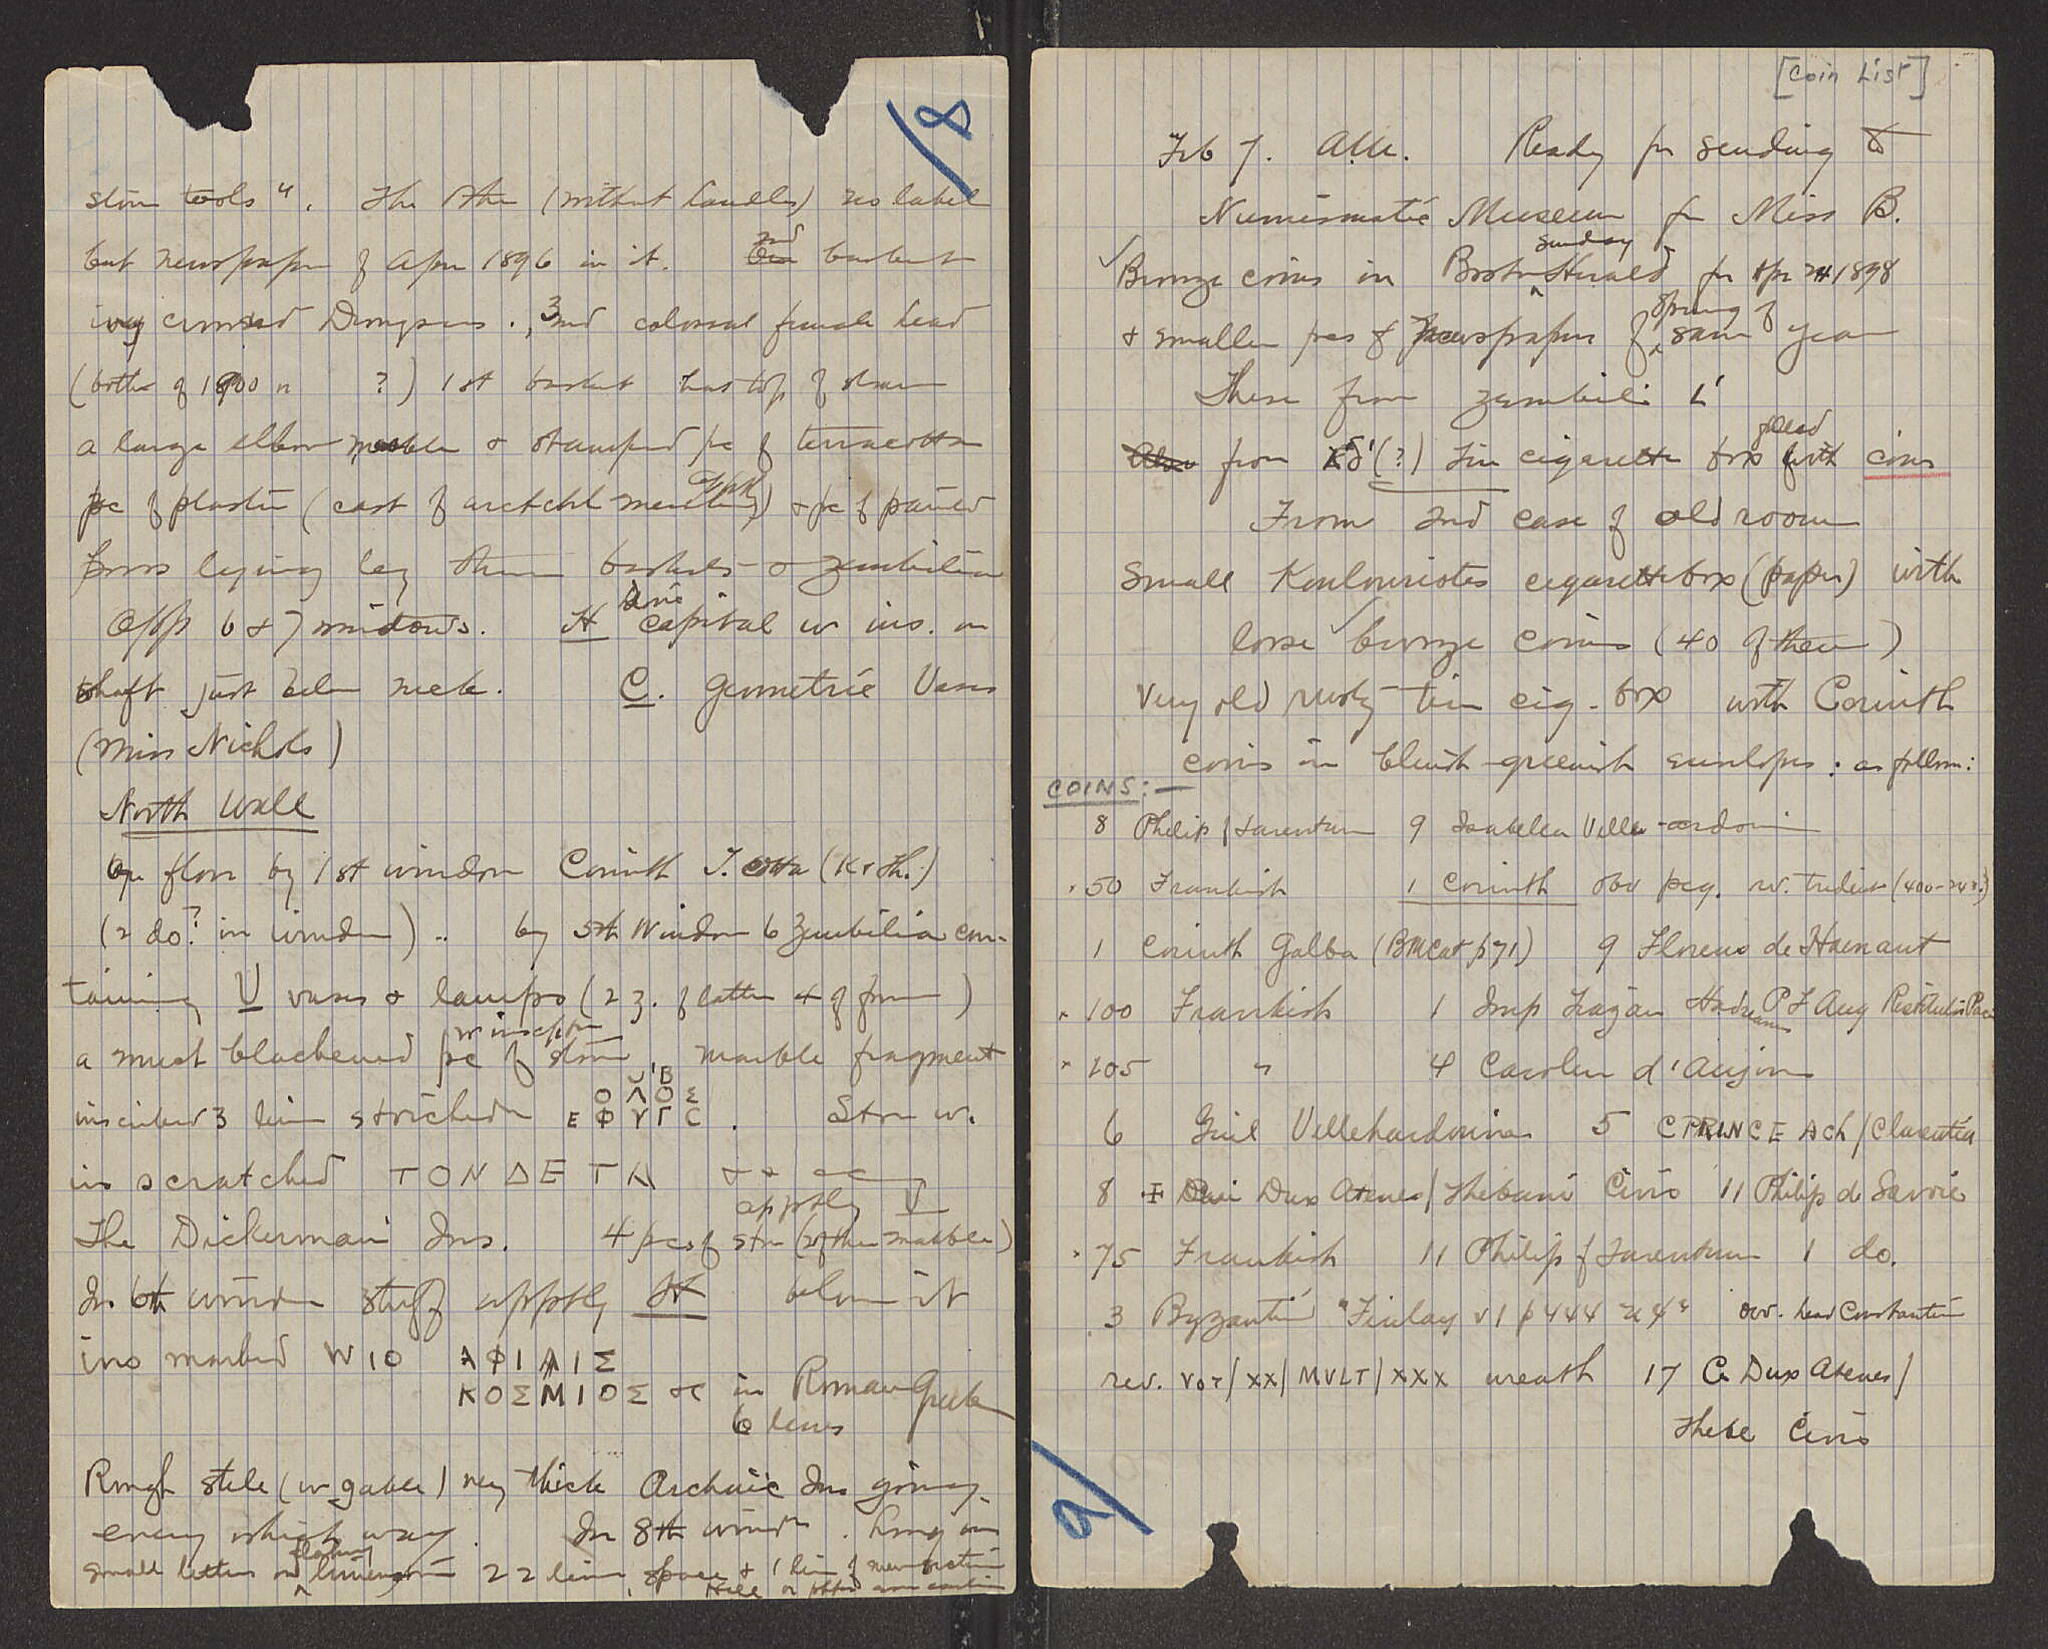 8
stone tools". The other (without handles) no label
but newspaper of Apr 1896 in it. 2nd basket
ivy crowned Dionysus. 3rd colossal female head
(both of 1900 or ?) 1st basket has top of
a large marble & stamped pc of terracotta
pc of plaster (cast of & pc of painted
lying by three baskets & zembilia
Opp 6 & 7 windows. H Ionic capital w ins. on
shaft just below neck. C. Geometric Vases
(Miss Nichols)
North Wall
On floor by 1st window Corinth T. cotta (K & Th.)
(2 do? in window) .. by 5th Window 6 Zembilia con-
taining V vases & lamps (2 z. of latter 4 of former)
a much blackened pc of stone w inscription, marble fragment
inscribed 3 lines
Ο Λ Ο Σ
Ε Φ Υ Γ C . Stone w.
ins scratched ΤΟΝ ΔΕ ΤΑ
apptly V
The Dickerman Ins. 4 pcs of stone (2 of them marble)
In 6th window stuff apptly H below it
ins marked W 10 ΑΦΙΑΙΣ
ΚΟΣΜΙΟΣ &c in Roman Greek
6 lines
Rough stele (w gable) very thick Archaic Ins going
every which way. In 8th window. Long ins
small letters on 22 lines, space & 1 line of new section
[Coin List]
Feb 7. Ready for sending to
Numismatic Museum for Miss B.
Bronze coins in Boston Sunday Herald for Apr 24 1898
& smaller pcs of newspapers of spring of same year
These from zembili L'
Also from δ'(?) Tin cigarette box filled with coins
From 2nd case of old room
Small Koulouriotes cigarette box (paper) with
loose bronze coins (40 of them)
Very old rusty tin cig-box with Corinth
coins in bluish-greenish envelopes: as follows:
COINS:—
8 Philip / Tarentum 9 Isabella Ville-ardouin
50 Frankish 1 Corinth obv peg. rv. Trident
1 Corinth Galba (BMCat p71) 9 Florens de Hainaut
100 Frankish 1 Imp Trajan Hadrianus P F Aug
105 " 4 Carolus d'Anjou
6 Guil Villehardouin 5 C PRINCE Ach / Clarentia
8 Dux Atenes / Thebani Civis 11 Philip de Savoie
75 Frankish 11 Philip of Tarentum 1 do.
3 Byzantine "Finlay v 1 p 444 obv. head Constantine
rev. VOT/XX/MVLT/XXX wreath 17 G Dux Atenes /
Thebe Civis
9